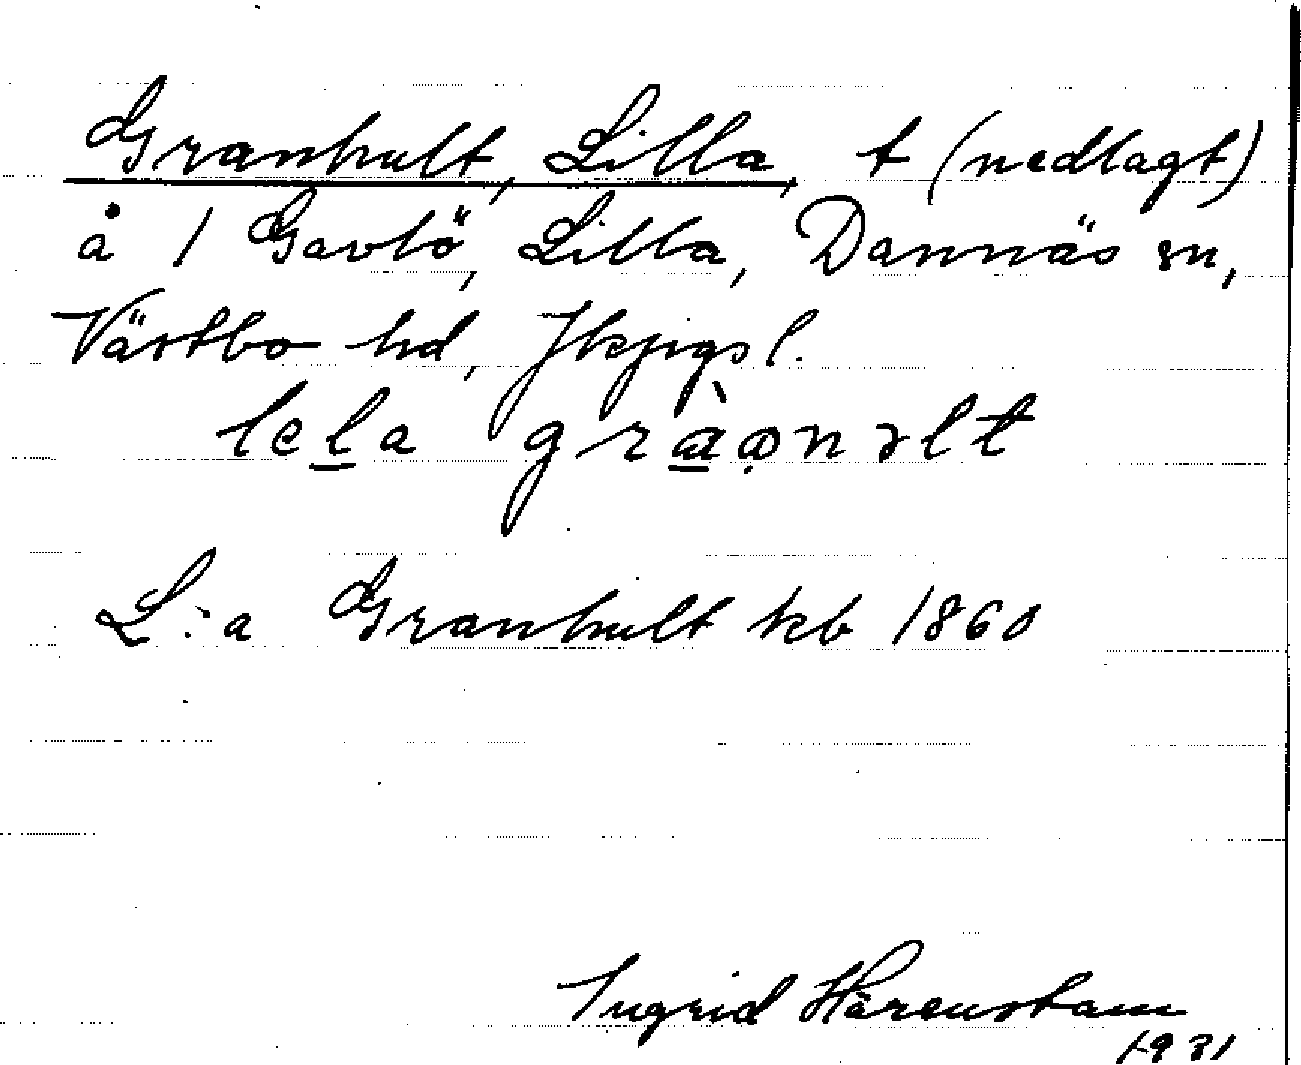 Granhult, Lilla, t (nedlagt)
å 1 Gavlö, Lilla, Dannäs sn,
Västbo hd, Jkpgs l.
lela gràanəlt
L:a Granhult kb 1860
Ingrid Härenstam
1931